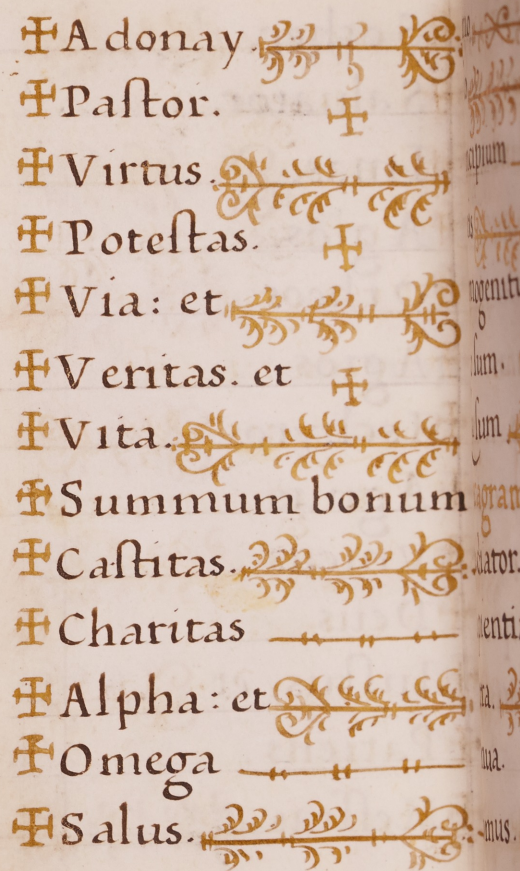 ✠ Adonay.
✠ Paſtor. ✠
✠ Virtus.
✠ Poteſtas. ✠
✠ Via: et
✠ Veritas. et ✠
✠ Vita.
✠ Summum bonum
✠ Caſtitas.
✠ Charitas
✠ Alpha: et
✠ Omega
✠ Salus.